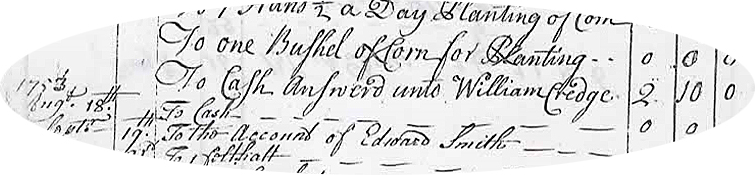 a Day Planting of Corn
To one Bushel of Corn for Planting - - 0 0 0
To Cash Answerd unto William Credge. 2 10 0
1753
Augt. 18th To Cash
19th To the Account of Edward Smith 0 0